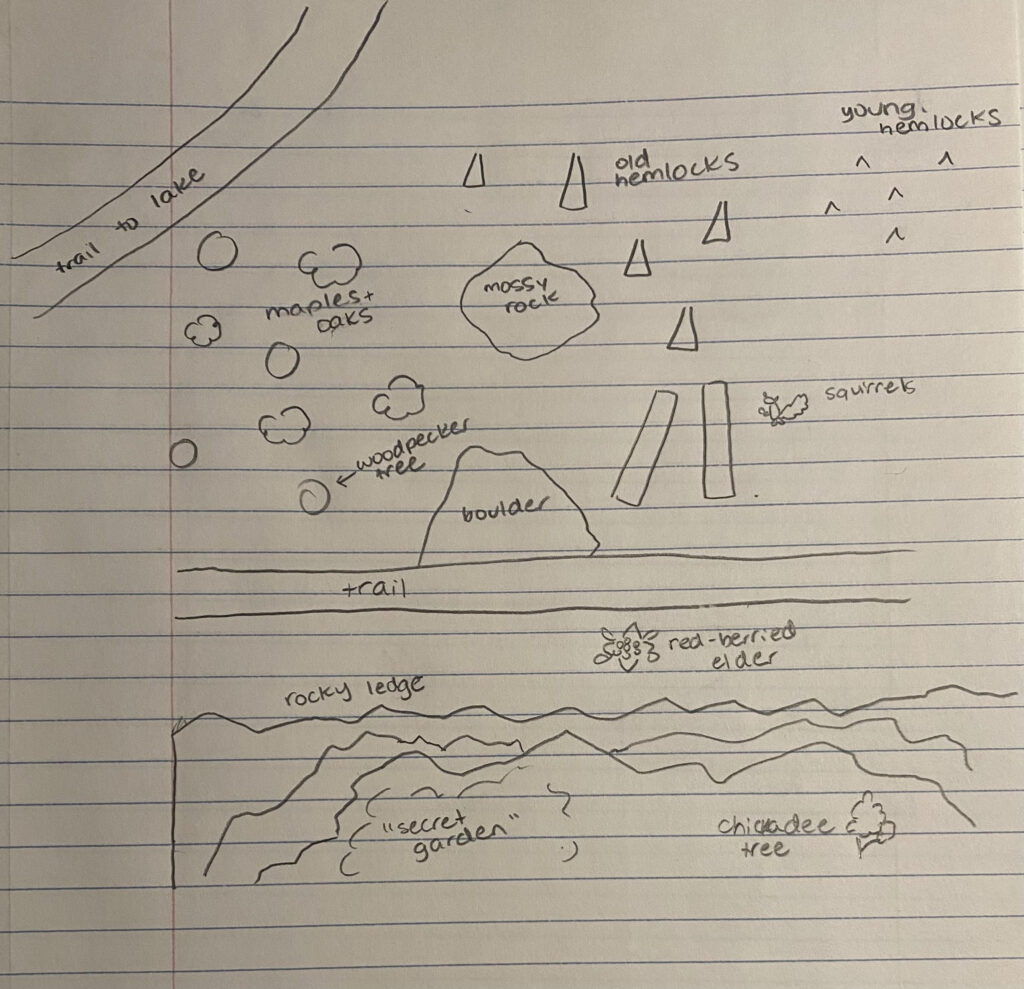 young
hemlocks
old
hemlocks
trail to lake
mossy
rock
maples+
oaks
squirrels
woodpecker
tree
boulder
trail
red-berried
elder
rocky ledge
"secret
garden"
chickadee
tree